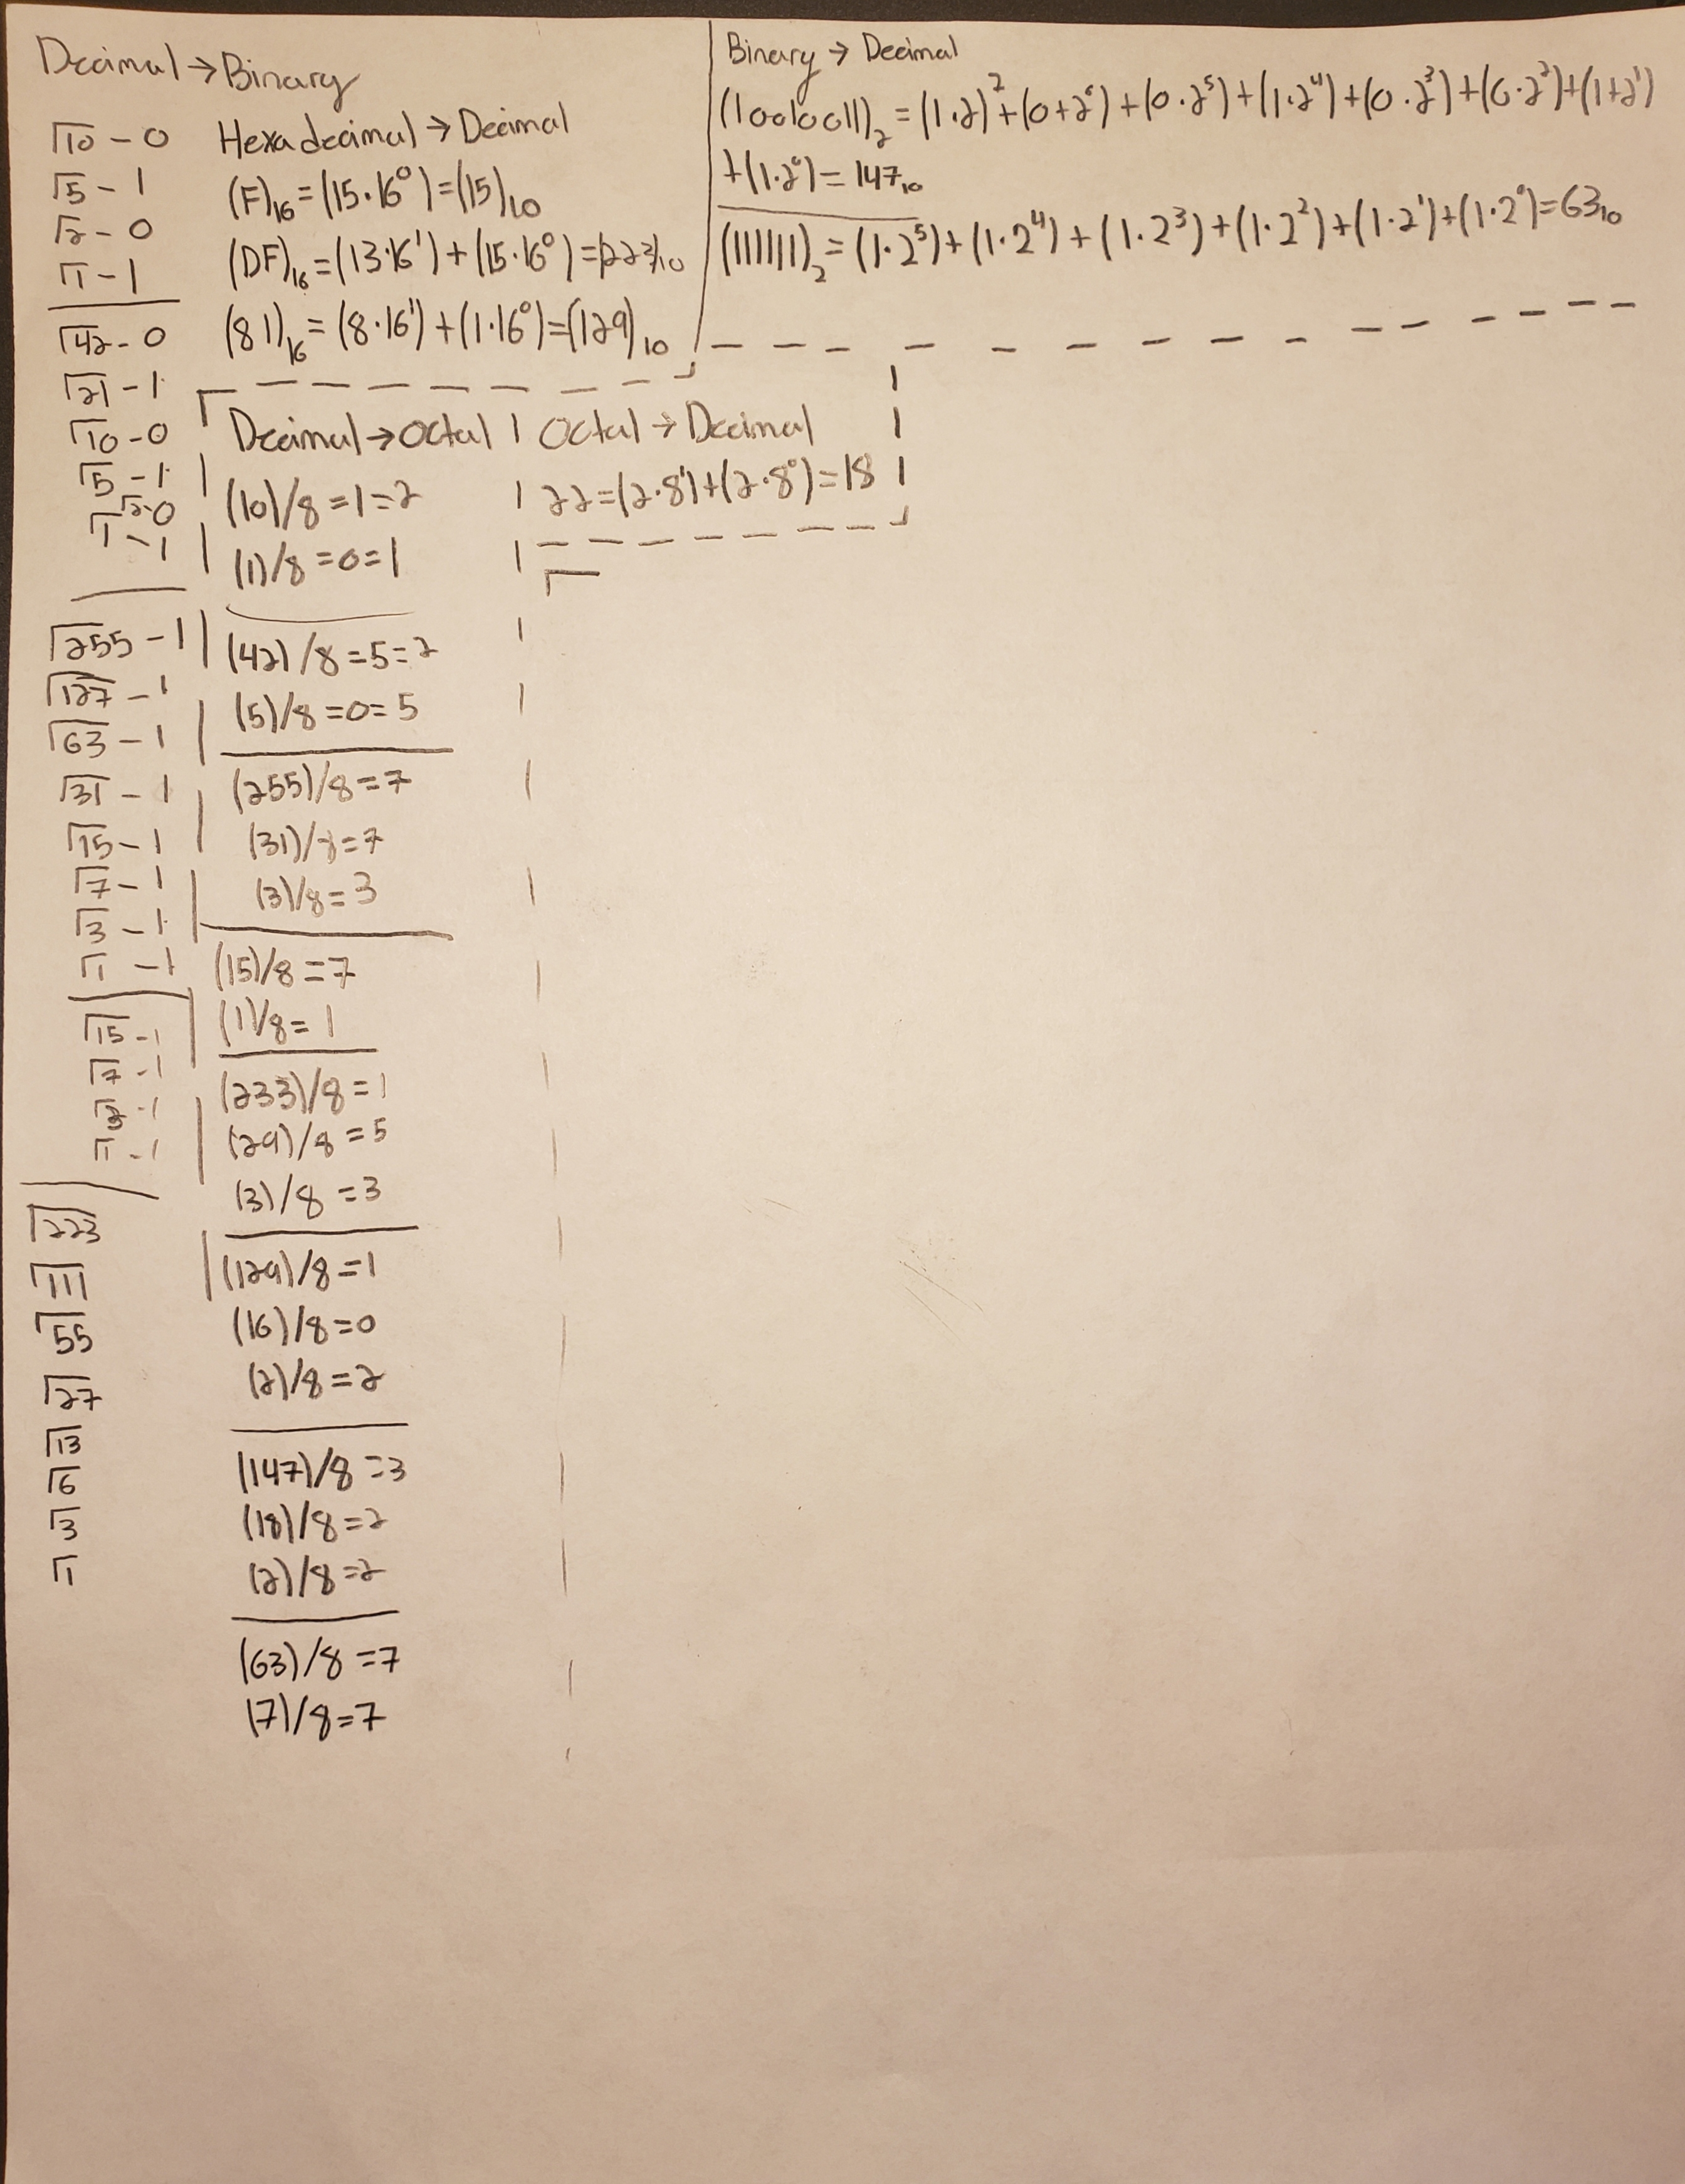 Decimal → Binary
10 - 0
5 - 1
2 - 0
1 - 1
42 - 0
21 - 1
10 - 0
5 - 1
2 - 0
1 - 1
255 - 1
127 - 1
63 - 1
31 - 1
15 - 1
7 - 1
3 - 1
1 - 1
15 - 1
7 - 1
3 - 1
1 - 1
223
111
55
27
13
6
3
1
Hexadecimal → Decimal
(F)₁₆ = (15·16⁰) = (15)₁₀
(DF)₁₆ = (13·16¹) + (15·16⁰) = (223)₁₀
(81)₁₆ = (8·16¹) + (1·16⁰) = (129)₁₀
Binary → Decimal
(10010011)₂ = (1·2)² + (0+2⁶) + (0·2⁵) + (1·2⁴) + (0·2³) + (0·2²) + (1+2¹)
+ (1·2⁰) = 147₁₀
(111111)₂ = (1·2⁵) + (1·2⁴) + (1·2³) + (1·2²) + (1·2¹) + (1·2⁰) = 63₁₀
Decimal → Octal
(10)/8 = 1 = 2
(1)/8 = 0 = 1
(42)/8 = 5 = 2
(5)/8 = 0 = 5
(255)/8 = 7
(31)/8 = 7
(3)/8 = 3
(15)/8 = 7
(1)/8 = 1
(233)/8 = 1
(29)/8 = 5
(3)/8 = 3
(129)/8 = 1
(16)/8 = 0
(2)/8 = 2
(147)/8 = 3
(18)/8 = 2
(2)/8 = 2
(63)/8 = 7
(7)/8 = 7
Octal → Decimal
22 = (2·8¹) + (2·8⁰) = 18